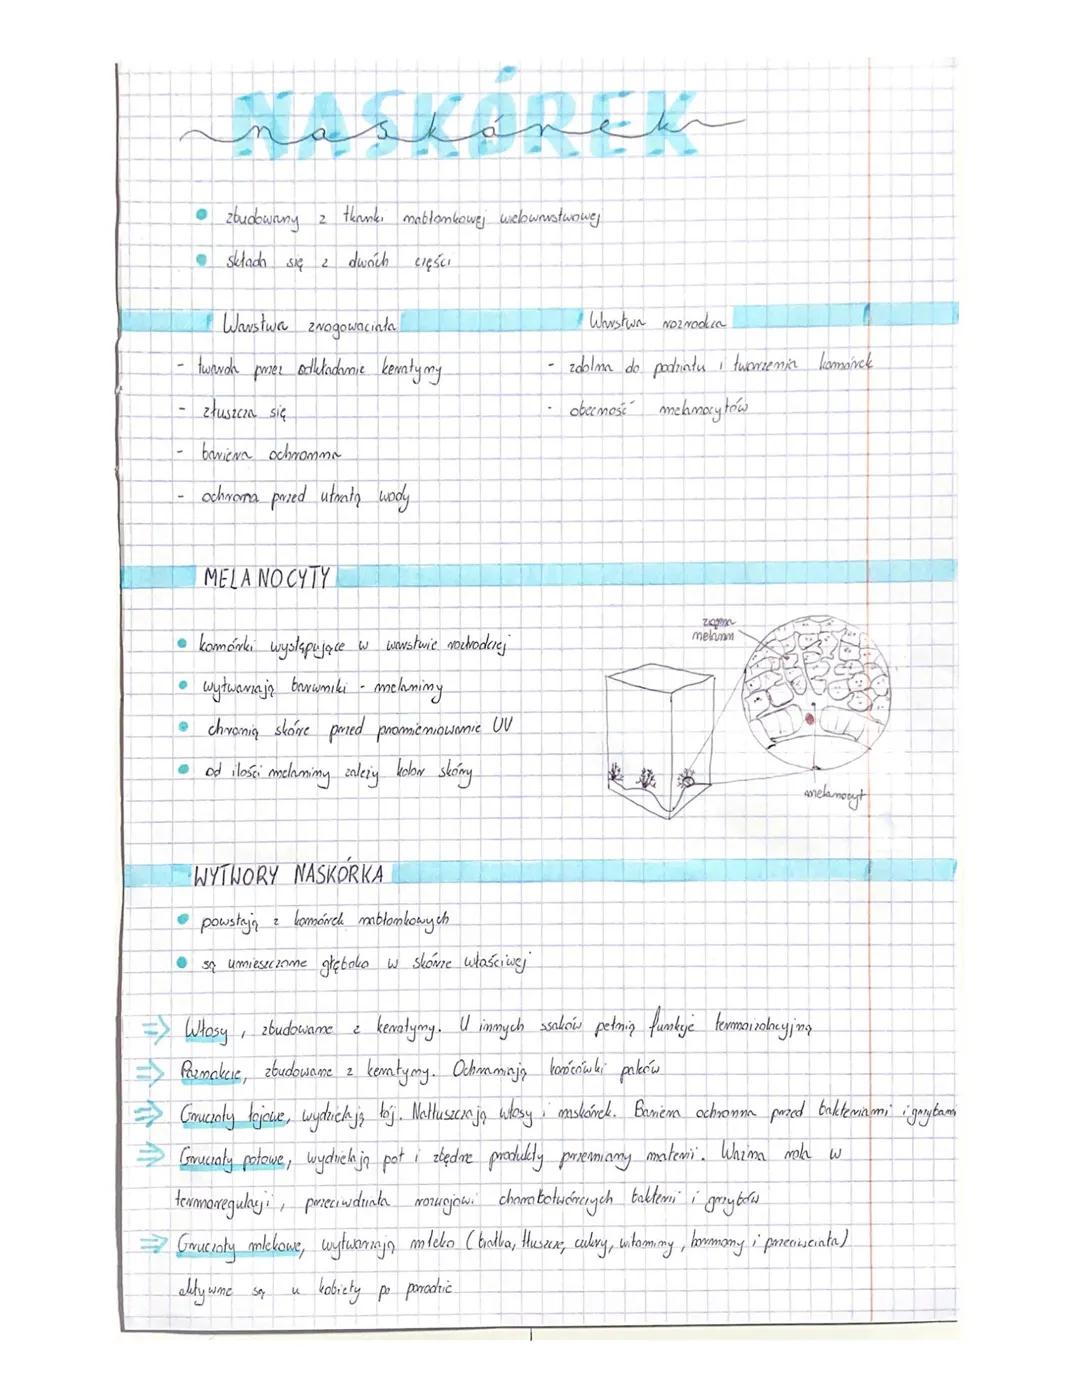 NASKÓREK
naskórek
zbudowany z tkanki nabłonkowej wielowarstwowej
składa się z dwóch części
Warstwa zrogowaciała
- twarda przez odkładanie keratyny
- złuszcza się
- bariera ochronna
- ochrona przed utratą wody
Warstwa rozrodcza
- zdolna do podziału i tworzenia komórek
- obecność melanocytów
MELANOCYTY
komórki występujące w warstwie rozrodczej
wytwarzają barwniki - melaniny
chronią skórę przed promieniowanie UV
od ilości melaniny zależy kolor skóry
ziarna
melanin
melanocyt
WYTWORY NASKÓRKA
powstają z komórek nabłonkowych
są umieszczone głęboko w skórze właściwej
⇒ Włosy, zbudowane z keratyny. U innych ssaków pełnią funkcje termoizolacyjną
⇒ Paznokcie, zbudowane z keratyny. Ochraniają końcówki palców
⇒ Gruczoły łojowe, wydzielają łój. Natłuszczają włosy i naskórek. Bariera ochronna przed bakteriami i grzybami
⇒ Gruczoły potowe, wydzielają pot i zbędne produkty przemiany materii. Ważna rola w
termoregulacji, przeciwdziała rozwojowi chorobotwórczych bakterii i grzybów
⇒ Gruczoły mlekowe, wytwarzają mleko (białka, tłuszcze, cukry, witaminy, hormony i przeciwciała)
aktywne są u kobiety po porodzie